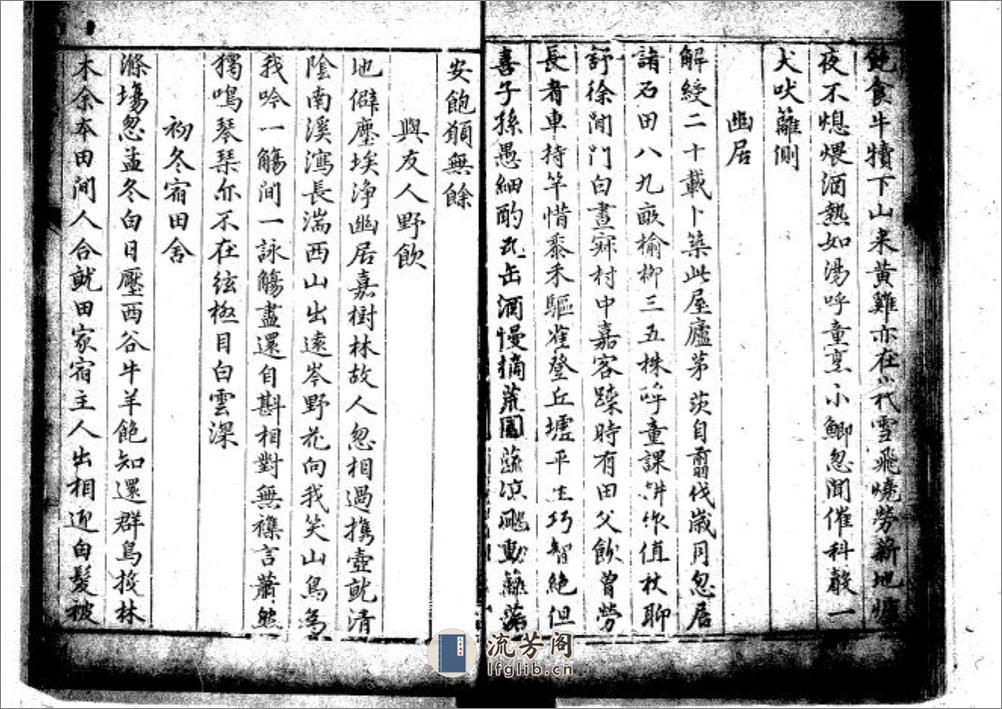 飽食牛犢下山来黄雞亦在㘭代雪飛燒勞薪地爐
夜不熄煨酒熱如湯呼童烹小鯽忽聞催科敲一
犬吠籬側
幽居
解綬二十載卜築此屋廬茅茨自翦伐歲月忽居
諸石田八九畝榆柳三五株呼童課耕作值杖聊
舒徐閭門白晝寂村中嘉客踈時有田父飲曾勞
長者車持竿惜黍禾驅雀登丘墟平生巧智絶但
喜子孫愚細酌瓦缶酒慢摘荒園蔬涼颸動籬落
安飽願無餘
與友人野飲
地僻塵埃淨幽居嘉樹林故人忽相過携壺就清
陰南溪瀉長湍西山出遠岑野花向我笑山鳥為
我吟一觴間一詠觴盡還自斟相對無襍言蕭然
獨鳴琴琹亦不在絃極目白雲深
初冬宿田舍
滌塲忽孟冬白日壓西谷牛羊飽知還群鳥投林
木余本田間人合就田家宿主人出相迎白髮被
流芳阁
lfglib.cn